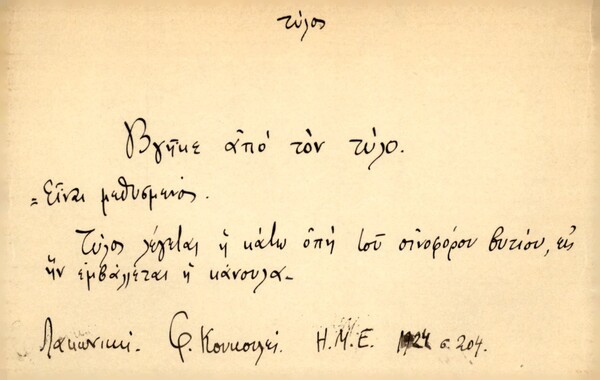 τύλος
Βγῆκε ἀπό τὸν τύλο.
= Εἶναι μεθυσμένος.
Τύλος λέγεται ἡ κάτω ὀπή τοῦ οἰνοφόρου βυτίου, εἰς
ἥν ἐμβάλλεται ἡ κάνουλα_
Λακωνική. Φ. Κουκουλές. Η.Μ.Ε. 1924 σ. 204.